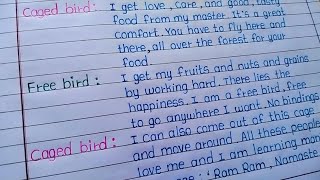 Caged bird: I get love, care, and good, tasty
food from my master. It's a great
comfort. You have to fly here and
there, all over the forest for your
food.
Free bird: I get my fruits and nuts and grains
by working hard. There lies the
happiness. I am a free bird, free
to go anywhere I want. No bindings
Caged bird: I can also come out of this cage
and move around. All these people
love me and I am learning
: "Ram Ram, Namaste